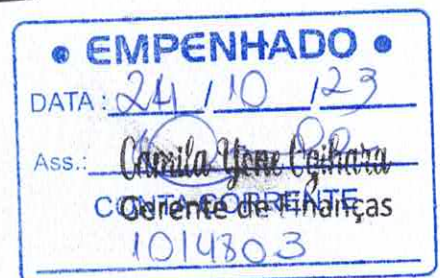 • EMPENHADO •
DATA: 24 / 10 / 23
Ass.: Camila Yone
CONTA CORRENTE
Gerente de Finanças
1014803